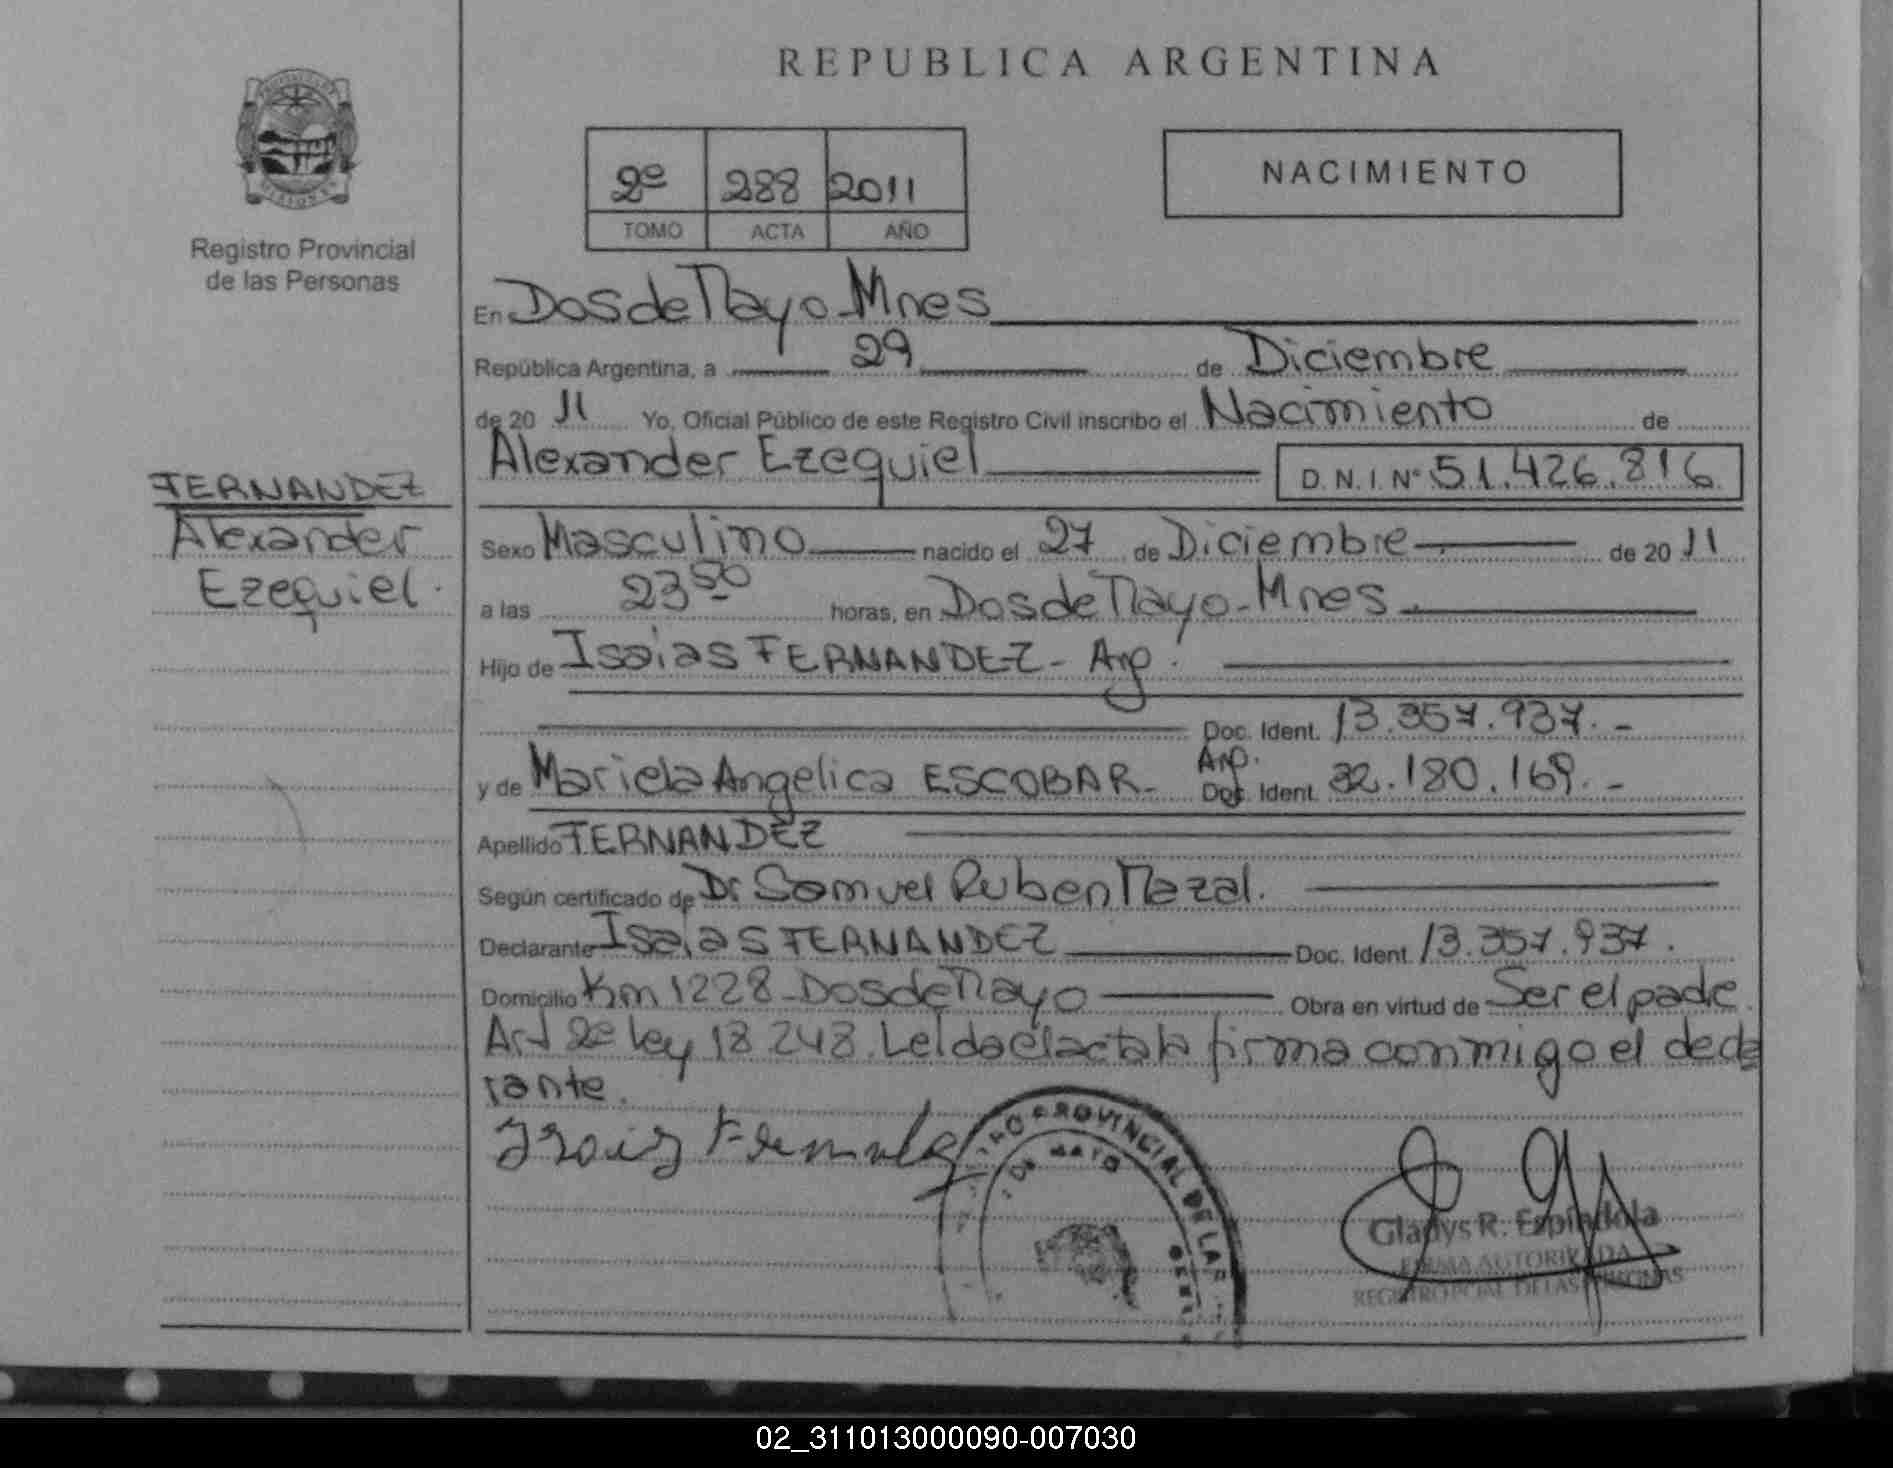 REPUBLICA ARGENTINA
NACIMIENTO
2º 288 2011
TOMO ACTA AÑO
Registro Provincial
de las Personas
En Dos de Mayo Mnes
República Argentina, a 29 de Diciembre
de 20 11 Yo, Oficial Público de este Registro Civil inscribo el Nacimiento de
Alexander Ezequiel D.N.I. Nº 51.426.816
FERNANDEZ
Alexander
Ezequiel.
Sexo Masculino nacido el 27 de Diciembre de 20 11
a las 23 50 horas, en Dos de Mayo - Mnes
Hijo de Isaias FERNANDEZ - Arg.
Doc. Ident. 13.357.937.-
Arg.
y de Mariela Angelica ESCOBAR - Doc. Ident. 32.180.169.-
Apellido FERNANDEZ
Según certificado de Dr Samuel Ruben Mazal.
Declarante Isaias FERNANDEZ Doc. Ident. 13.357.937.
Domicilio Km 1228 - Dos de Mayo Obra en virtud de Ser el padre.
Art 2º ley 18 248. Leida el acta la firma conmigo el decla
rante.
Isaias Fernandez
PROVINCIAL DE LAS
DE MAYO
Gladys R. Espíndola
FIRMA AUTORIZADA
REGISTRO PCIAL DE LAS PERSONAS
02_311013000090-007030